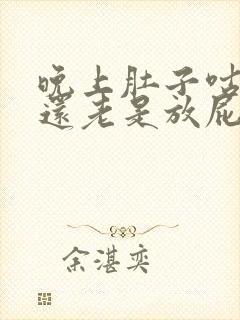 晚上肚子咕
還老是放屁
余湛奕